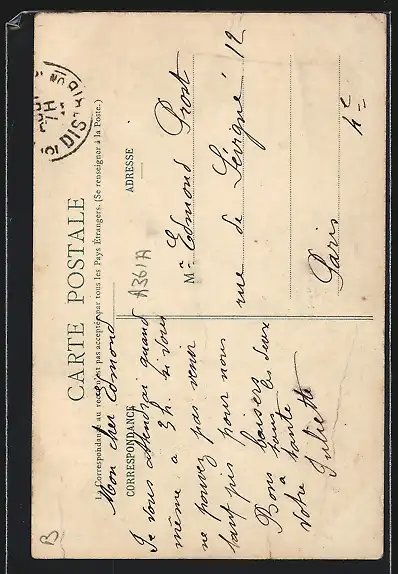 CARTE POSTALE
La Correspondance au recto n'est pas acceptée par tous les Pays Étrangers. (Se renseigner à la Poste.)
CORRESPONDANCE
ADRESSE
A361A
Mon cher Edmond
Je vous attendrai quand
même à 3h. si vous
ne pouvez pas venir
tant pis pour nous
Bons baisers
à toute les deux
Votre
Juliette
Mr Edmond Prost
rue de Sévigné 12
Paris
4e
B